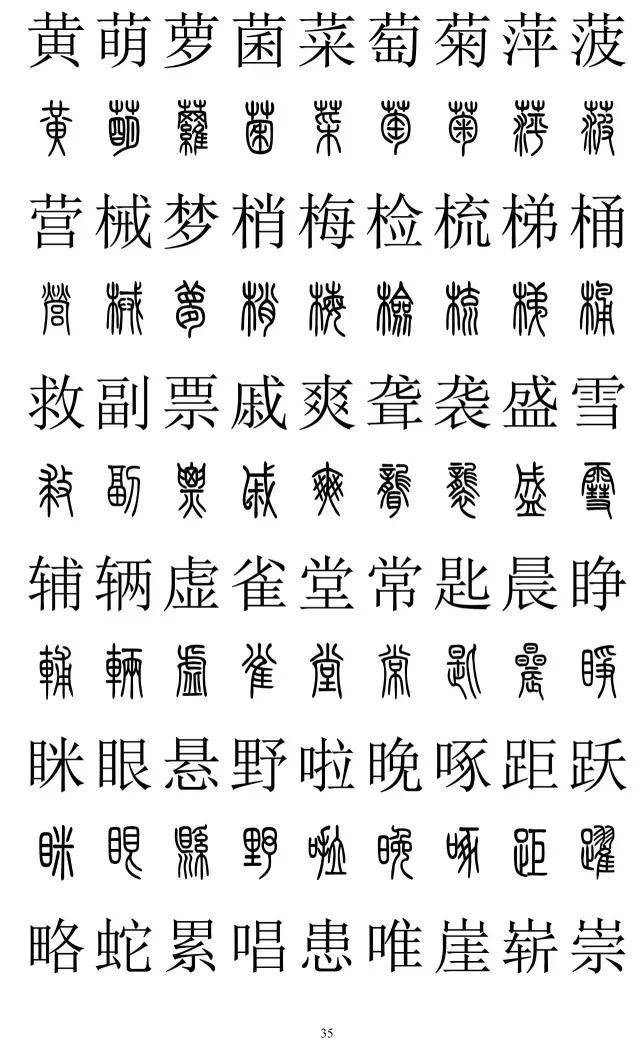 黄萌萝菌菜萄菊萍菠
黃萌蘿菌菜萄菊萍菠
营械梦梢梅检梳梯桶
營械夢梢梅檢梳梯桶
救副票戚爽聋袭盛雪
救副票戚爽聾襲盛雪
辅辆虚雀堂常匙晨睁
輔輛虛雀堂常匙晨睜
眯眼悬野啦晚啄距跃
眯眼縣野啦晚啄距躍
略蛇累唱患唯崖崭崇
35